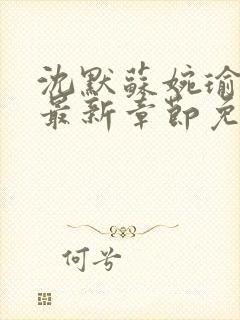 沈默蘇婉瑜
最新章節免
何兮